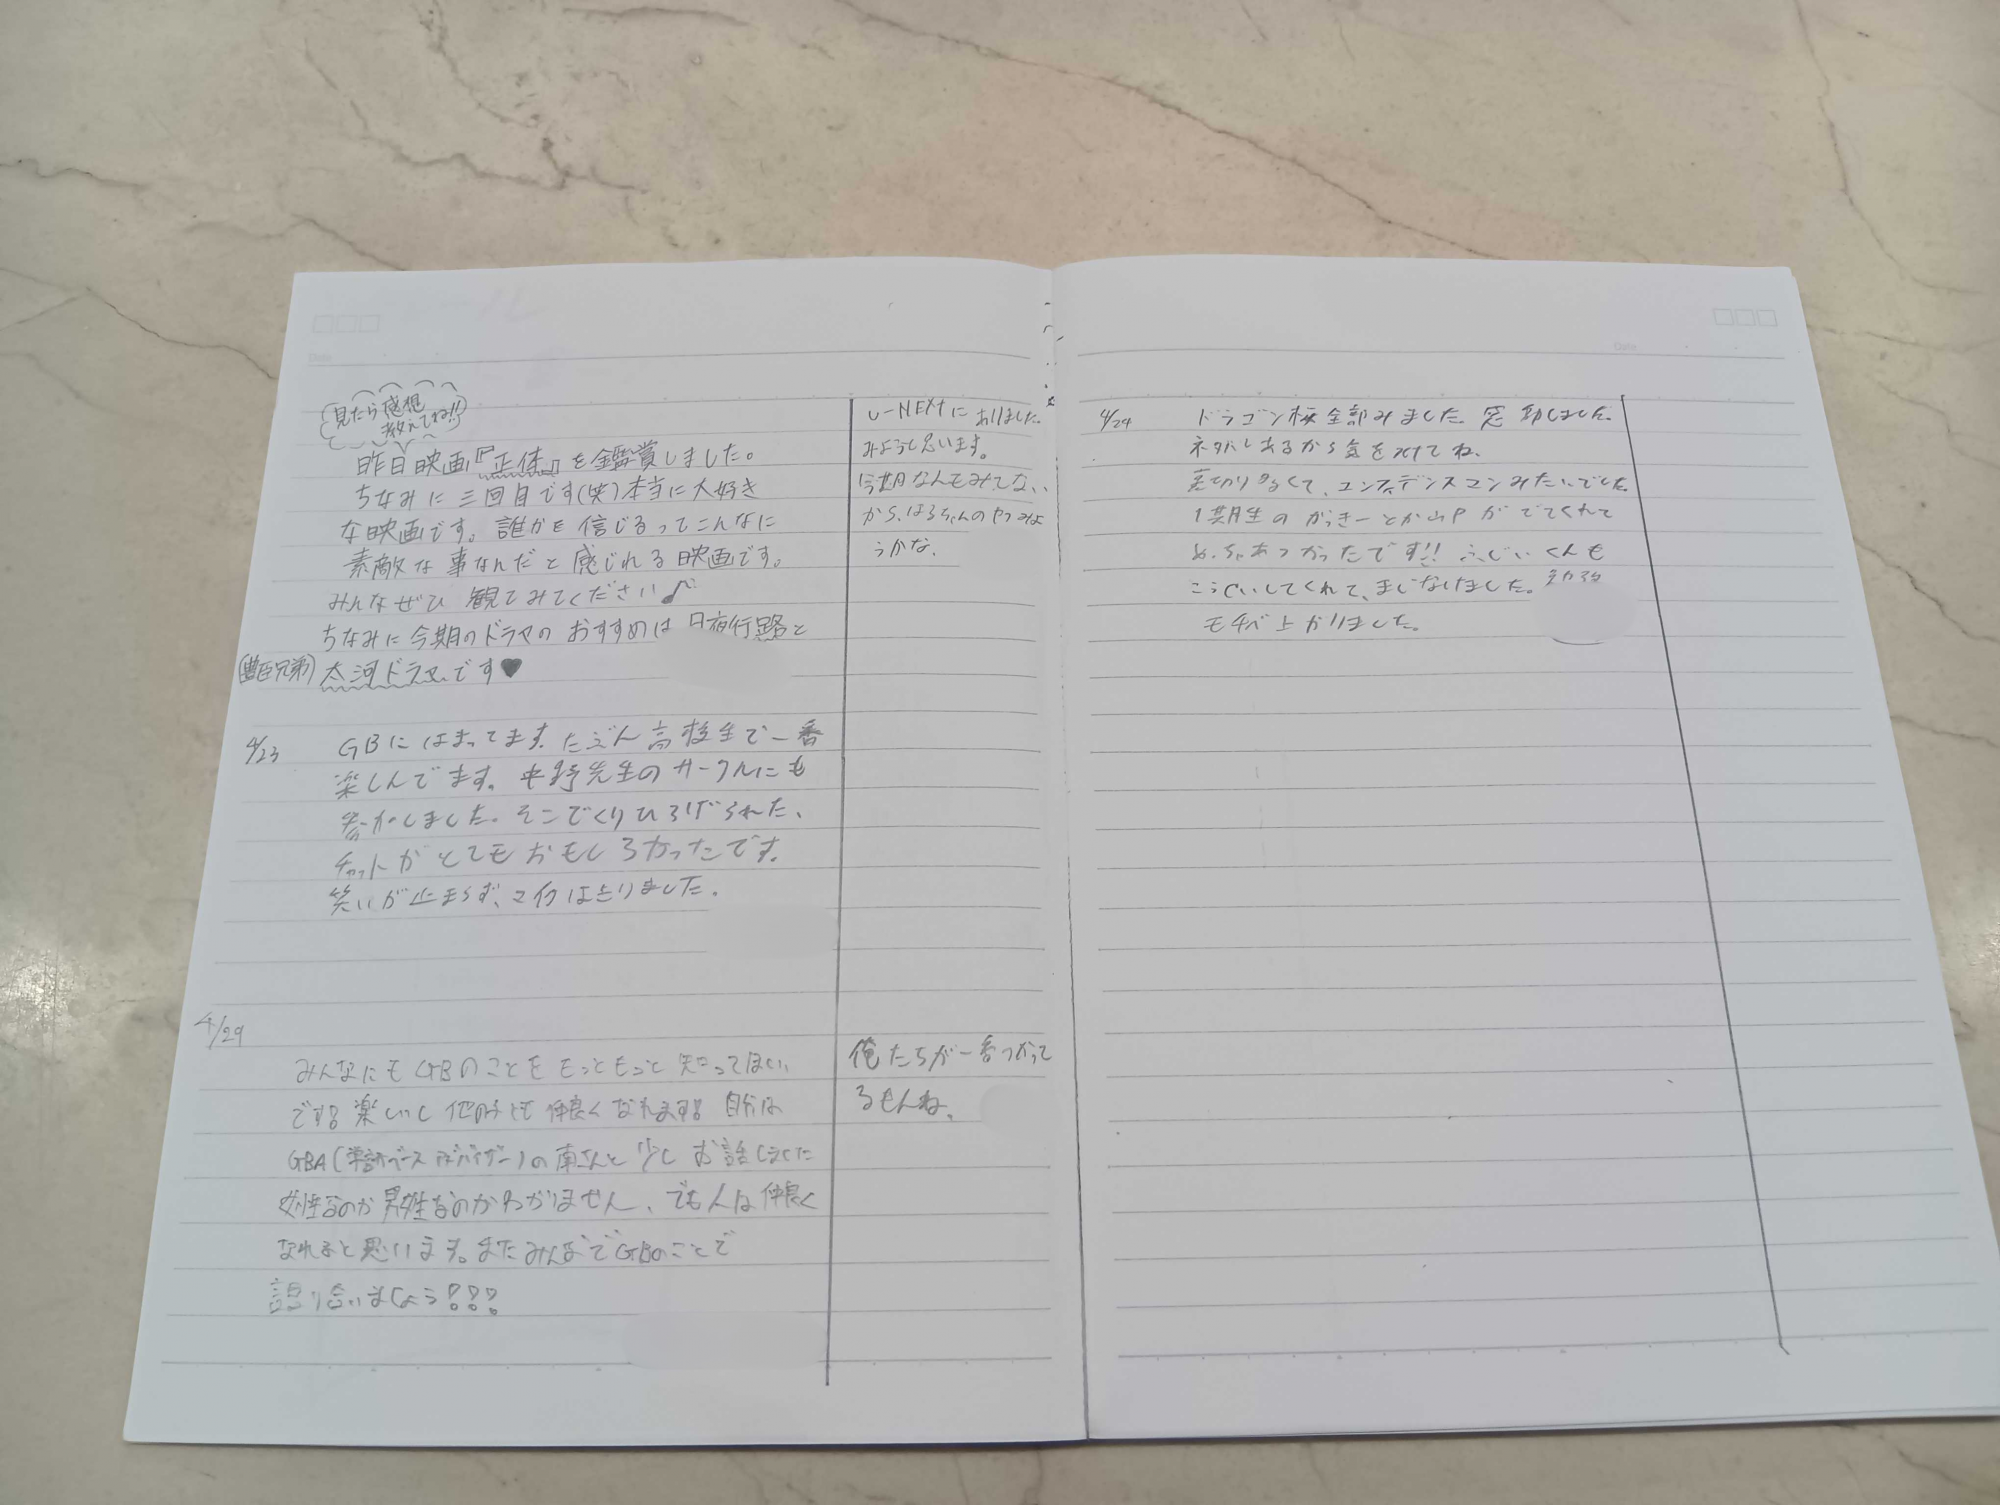 見たら感想
教えてね!!
昨日映画『正体』を鑑賞しました。
ちなみに三回目です(笑)本当に大好き
な映画です。誰かを信じるってこんなに
素敵な事なんだと感じれる映画です。
みんなぜひ観てみてください♪
ちなみに今期のドラマのおすすめは月夜行路と
(豊臣兄弟)大河ドラマです♥
U-NEXTにありました。
みようと思います。
今期なんもみてない
から、はるちゃんのやつみよ
うかな。
4/23 GBにはまってます。たぶん高校生で一番
楽しんでます。中野先生のサークルにも
参加しました。そこでくりひろげられた、
チャットがとてもおもしろかったです。
笑いが止まらず、マイクはきりました。
4/29
みんなにもGBのことをもっともっと知ってほしい
です!楽しいし他の子とも仲良くなれます!自分は
GBA(学割ベースアドバイザー)の南さんと少しお話しました
女性なのか男性なのかわかりません、でも人は仲良く
なれると思います。またみんなでGBのことで
語り合いましょう!!!
俺たちが一番つかって
るもんね。
4/24 ドラゴン桜全部みました。感動しました。
ネタバレあるから気をつけてね。
裏切り多くて、コンフィデンスマンみたいでした
1期生のがっきーとか山Pがでてくれて
めっちゃあつかったです!!ふじいくんも
こうせいしてくれて、まじなけました。勉強
モチベ上がりました。